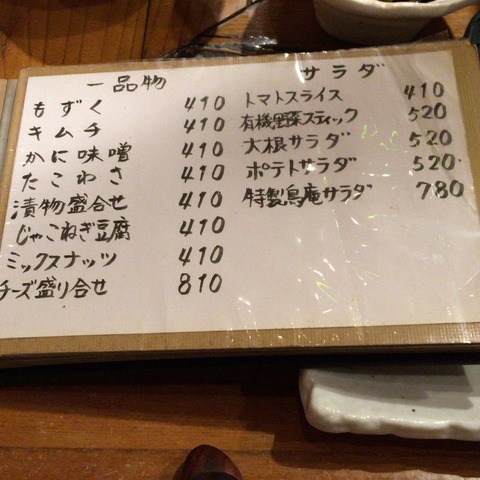 一品物
もずく 410
キムチ 410
かに味噌 410
たこわさ 410
漬物盛合せ 410
じゃこねぎ豆腐 410
ミックスナッツ 410
チーズ盛り合せ 810
サラダ
トマトスライス 410
有機野菜スティック 520
大根サラダ 520
ポテトサラダ 520
特製鳥庵サラダ 780